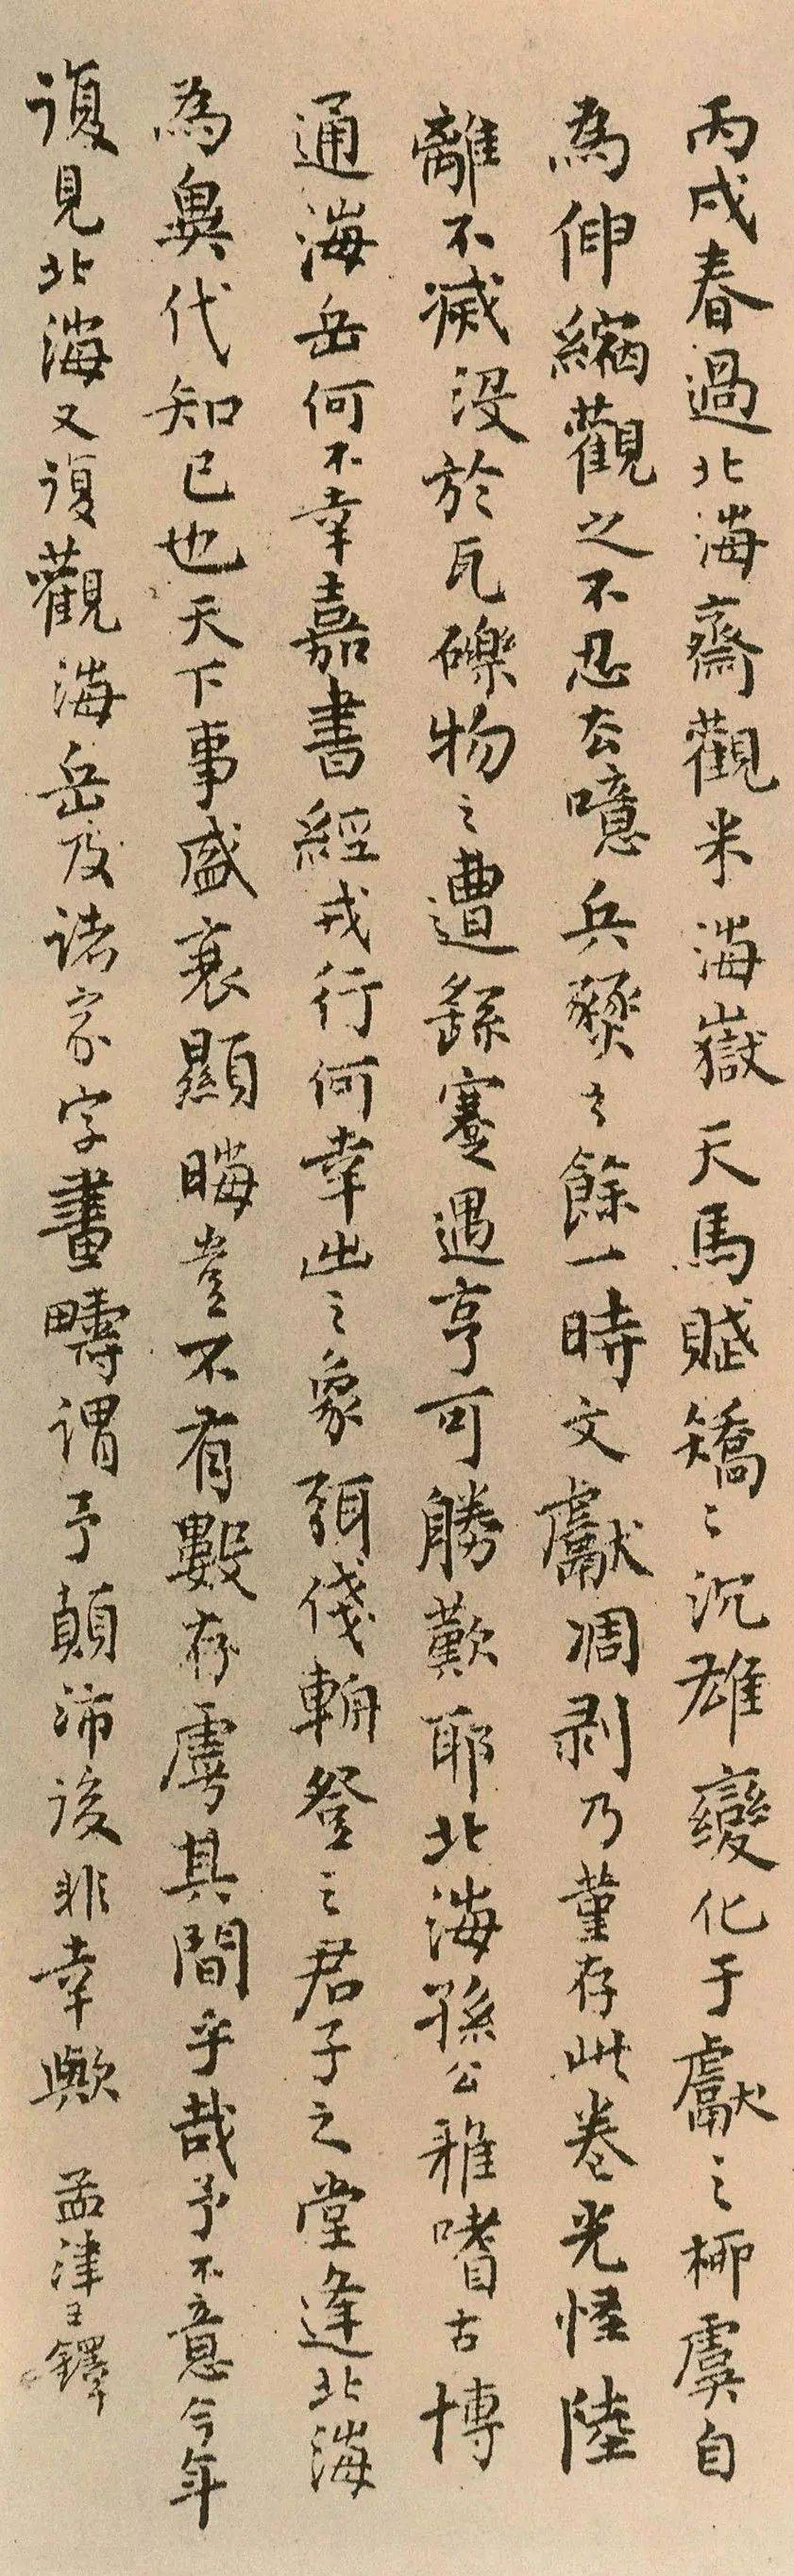 丙戌春過北海齋觀米海嶽天馬賦矯〻沉雄變化于獻之柳虞自
為伸縮觀之不忍去噫兵燹之餘一時文獻凋剥乃菫存此卷光怪陸
離不滅没於瓦礫物之遭繇蹇遇亨可勝歎耶北海孫公雅嗜古博
通海岳何不幸嘉書經戎行何幸出之象弭俴輈登之君子之堂逢北海
為異代知己也天下事盛衰顯晦豈不有數存虖其間乎哉予不意今年
復見北海又復觀海岳及諸家字畫疇謂予顛沛後非幸歟 孟津王鐸